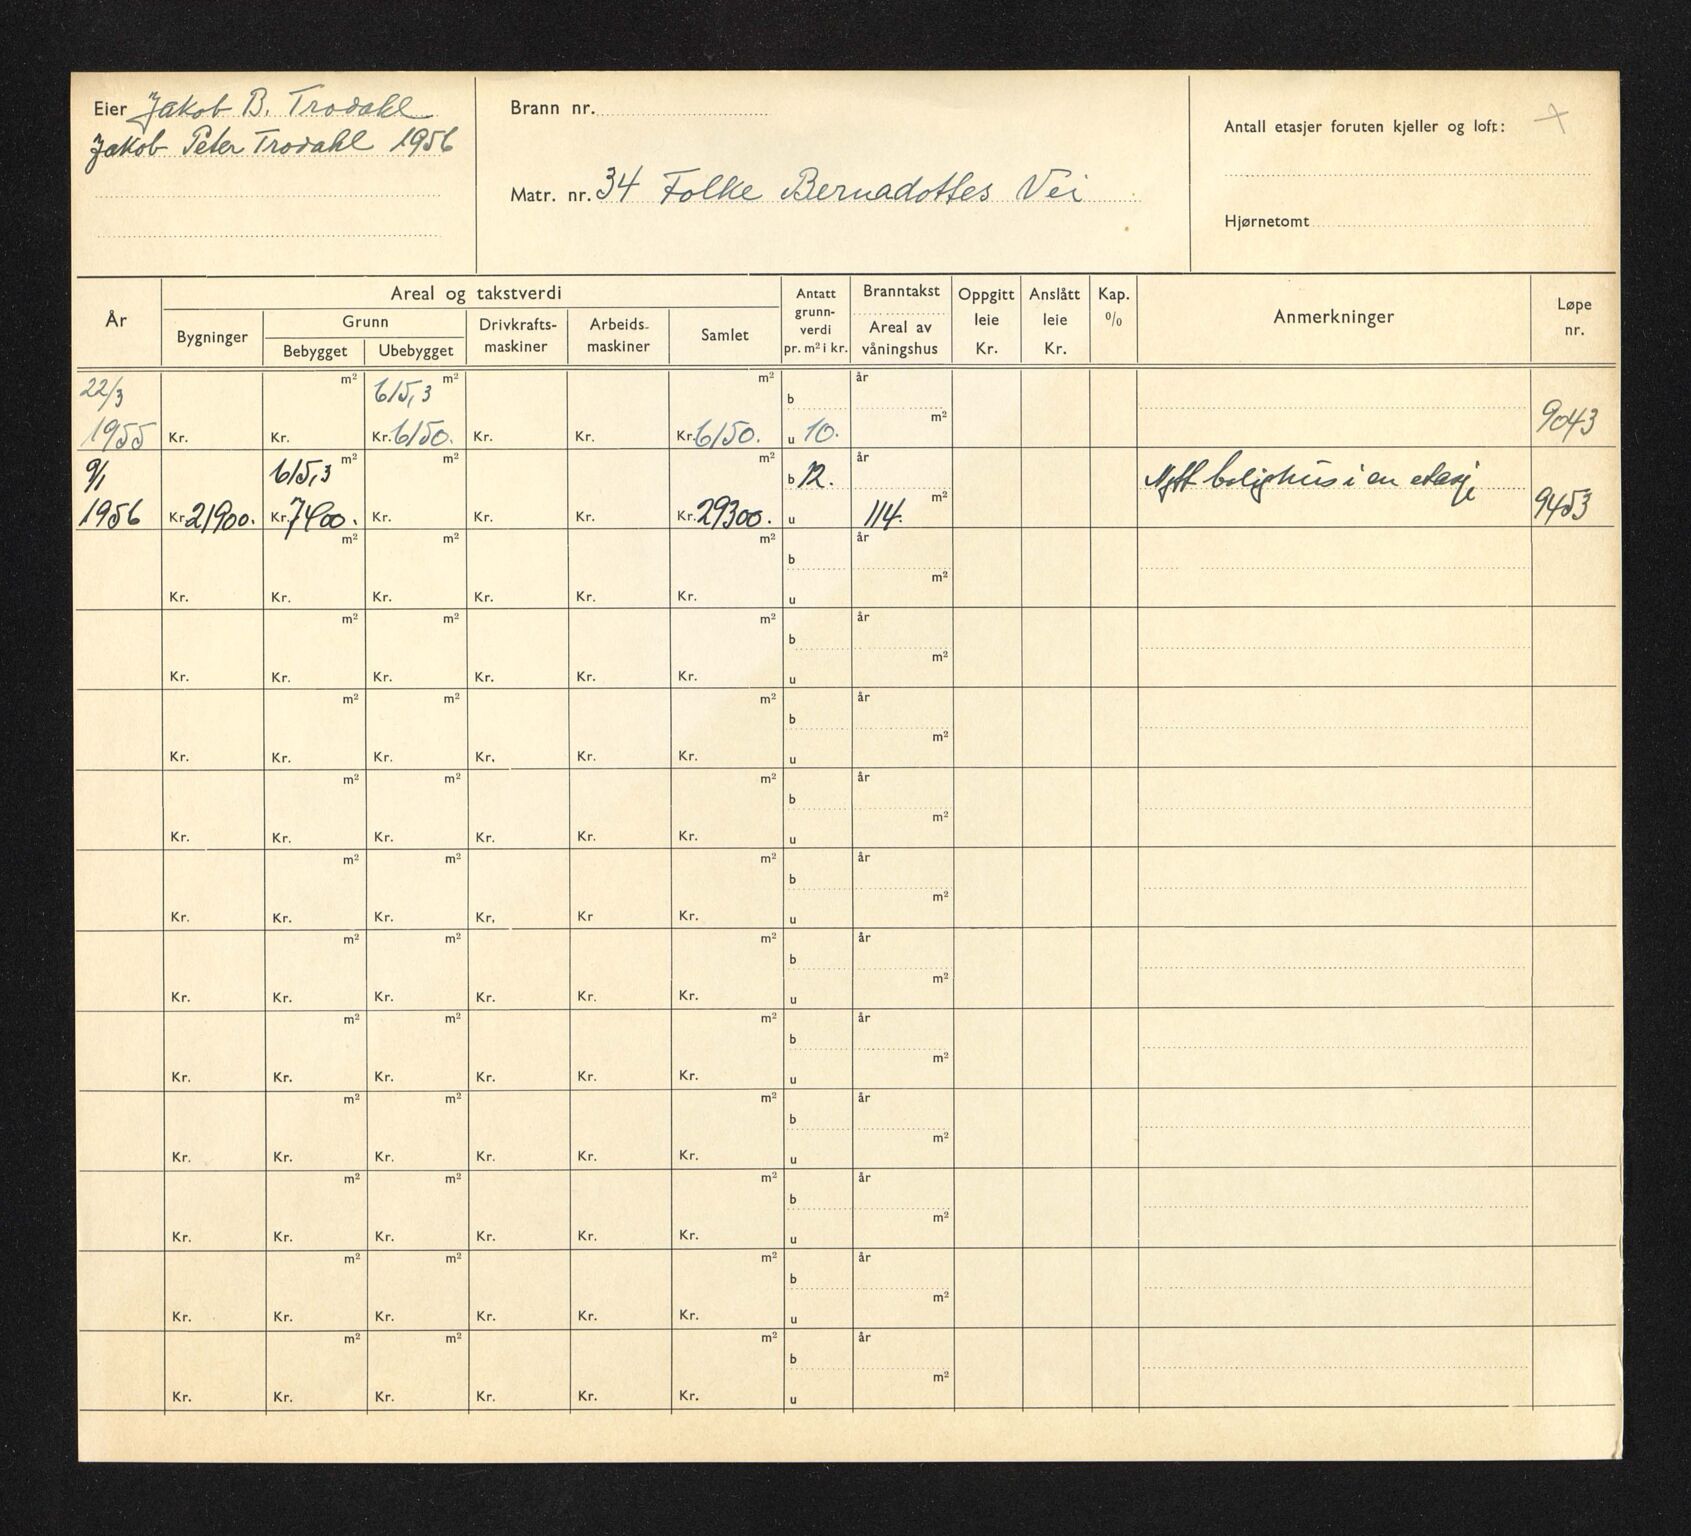 Eier Jakob B. Trodahl
Jakob Peter Trodahl 1956
Brann nr.
Matr. nr. 34 Folke Bernadottes Vei
Antall etasjer foruten kjeller og loft: +
Hjørnetomt
År
Areal og takstverdi
Bygninger
Grunn
Bebygget Ubebygget
Drivkrafts-
maskiner
Arbeids-
maskiner
Samlet
Antatt
grunn-
verdi
pr. m² i kr.
Branntakst
Areal av
våningshus
Oppgitt
leie
Kr.
Anslått
leie
Kr.
Kap.
%
Anmerkninger
Løpe
nr.
22/3 m² 615,3 m² m² b år
1955 Kr. Kr. Kr. 6150. Kr. Kr. Kr. 6150. u 10. m² 9043
9/1 615,3 m² m² m² b 12. år Nytt bolighus i en etasje
1956 Kr. 21900. Kr. 7400. Kr. Kr. Kr. Kr. 29300. u 114. m² 9453
m² m² m² b år
Kr. Kr. Kr. Kr. Kr. Kr. u m²
m² m² m² b år
Kr. Kr. Kr. Kr. Kr. Kr. u m²
m² m² m² b år
Kr. Kr. Kr. Kr. Kr. Kr. u m²
m² m² m² b år
Kr. Kr. Kr. Kr. Kr. Kr. u m²
m² m² m² b år
Kr. Kr. Kr. Kr. Kr Kr. u m²
m² m² m² b år
Kr. Kr. Kr. Kr. Kr. Kr. u m²
m² m² m² b år
Kr. Kr. Kr. Kr. Kr. Kr. u m²
m² m² m² b år
Kr. Kr. Kr. Kr. Kr. Kr. u m²
m² m² m² b år
Kr. Kr. Kr. Kr. Kr. Kr. u m²
m² m² m² b år
Kr. Kr. Kr. Kr. Kr. Kr. u m²
m² m² m² b år
Kr. Kr. Kr. Kr. Kr. Kr. u m²